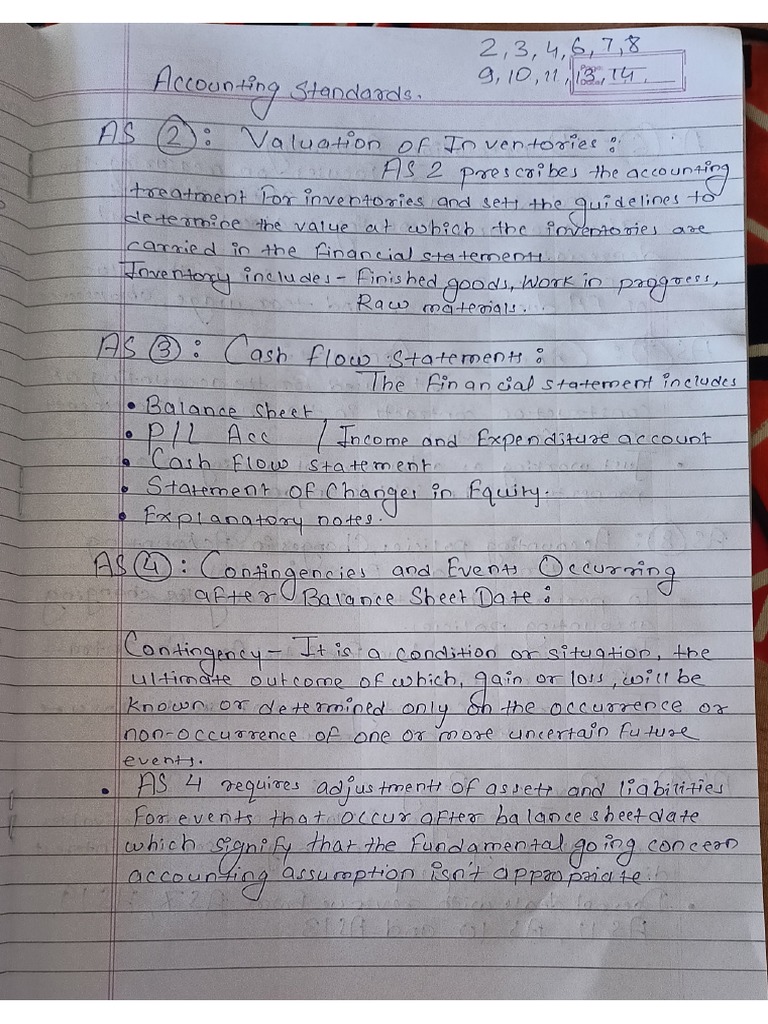 2, 3, 4, 6, 7, 8
9, 10, 11, 13, 14.
Accounting Standards.
AS 2 : Valuation of Inventories :
AS 2 prescribes the accounting
treatment for inventories and sets the guidelines to
determine the value at which the inventories are
carried in the financial statements.
Inventory includes - Finished goods, Work in progress,
Raw materials...
AS 3 : Cash flow Statements :
The Financial statement includes
• Balance sheet
• P/L Acc / Income and Expenditure account
• Cash flow statement
• Statement of Changes in Equity.
• Explanatory notes.
AS 4 : Contingencies and Events Occurring
after Balance Sheet Date :
Contingency - It is a condition or situation, the
ultimate outcome of which, gain or loss, will be
known or determined only on the occurrence or
non-occurrence of one or more uncertain future
events.
• AS 4 requires adjustments of assets and liabilities
for events that occur after balance sheet date
which signify that the fundamental going concern
accounting assumption isn't appropriate.